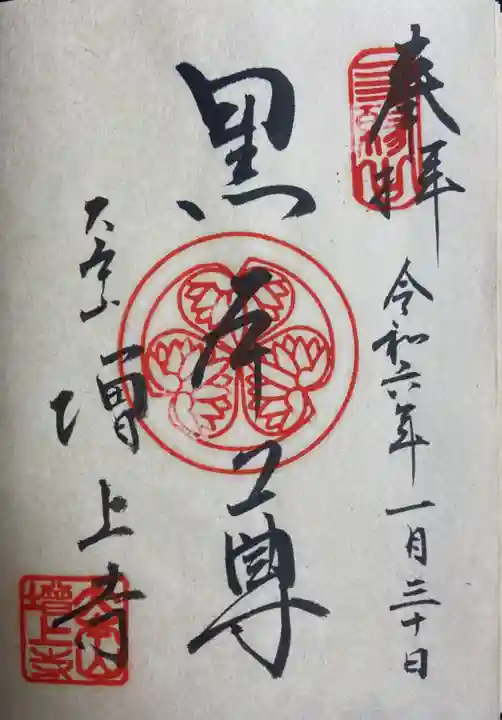 奉拝
令和六年一月三十日
黒本尊
大本山
増上寺
三縁山
増上寺